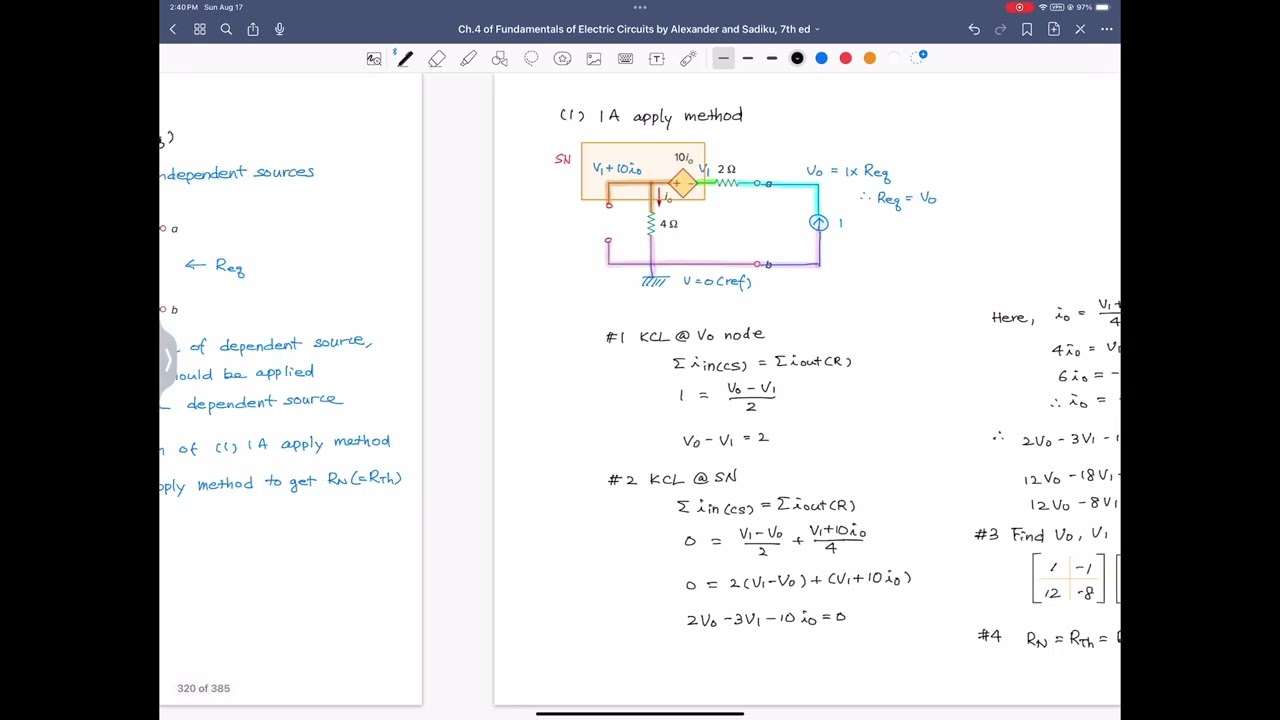 2:40 PM Sun Aug 17
VPN 97%
Ch.4 of Fundamentals of Electric Circuits by Alexander and Sadiku, 7th ed
ndependent sources
a
← Req
b
of dependent source,
ould be applied
dependent source
of (1) 1A apply method
pply method to get RN(=RTh)
320 of 385
(1) 1A apply method
SN
V1+10io
10io
V1
2 Ω
a
Vo = 1x Req
∴ Req = Vo
io
4 Ω
1
b
V=0(ref)
#1 KCL @ Vo node
Σ iin(CS) = Σ iout(R)
1 = (Vo - V1)/2
Vo - V1 = 2
#2 KCL @ SN
Σ iin(CS) = Σ iout(R)
0 = (V1-Vo)/2 + (V1+10io)/4
0 = 2(V1-Vo)+(V1+10io)
2Vo -3V1 -10io = 0
Here, io = V1+/4
4io = V
6io = -
∴ io =
∴ 2Vo - 3V1 - 1
12Vo - 18V1 -
12Vo - 8V1
#3 Find Vo, V1
1 -1
12 -8
#4 RN = RTh =